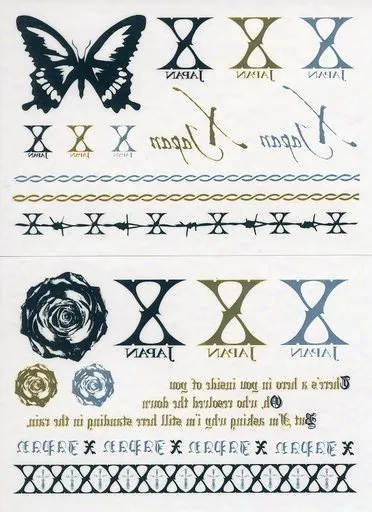 X X X
JAPAN JAPAN JAPAN
X Japan X Japan
X X X
JAPAN JAPAN JAPAN
X X X X X X
X X X
JAPAN JAPAN JAPAN
There's a hero in you inside of you
Oh, who resolved the down
But I'm asking why i'm still here standing in the rain.
X Japan X Japan X Japan X Japan